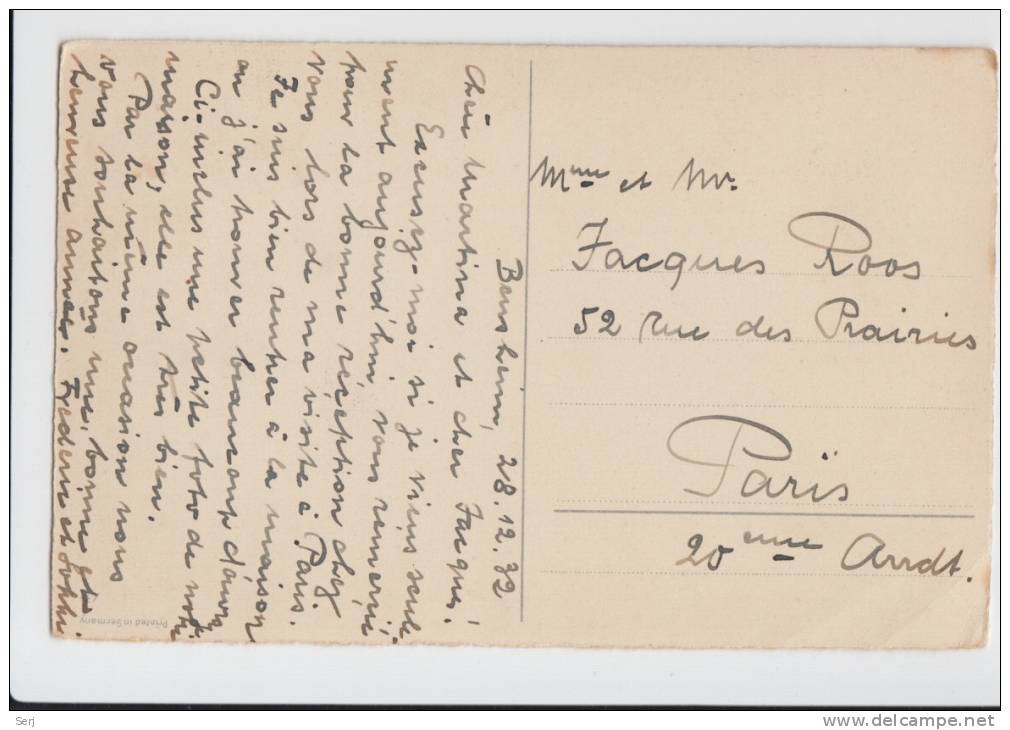 Bensheim, 28.12.32
Chère Martina et cher Jacques!
Excusez-moi si je viens seule-
ment aujourd'hui vous remercié
pour la bonne réception chez
vous lors de ma visite à Paris.
Je suis bien rentrer à la maison
ou j'ai trouver beaucoup d'ouvr.
Ci-inclus une petite foto de notr.
maison, elle est très bien.
Par la même occasion nous
vous souhaitons une, bonne et
heureuse année.
Mme et Mr.
Jacques Roos
52 rue des Prairies
Paris
20eme Arrdt.
Printed in Germany
Serj
www.delcampe.net